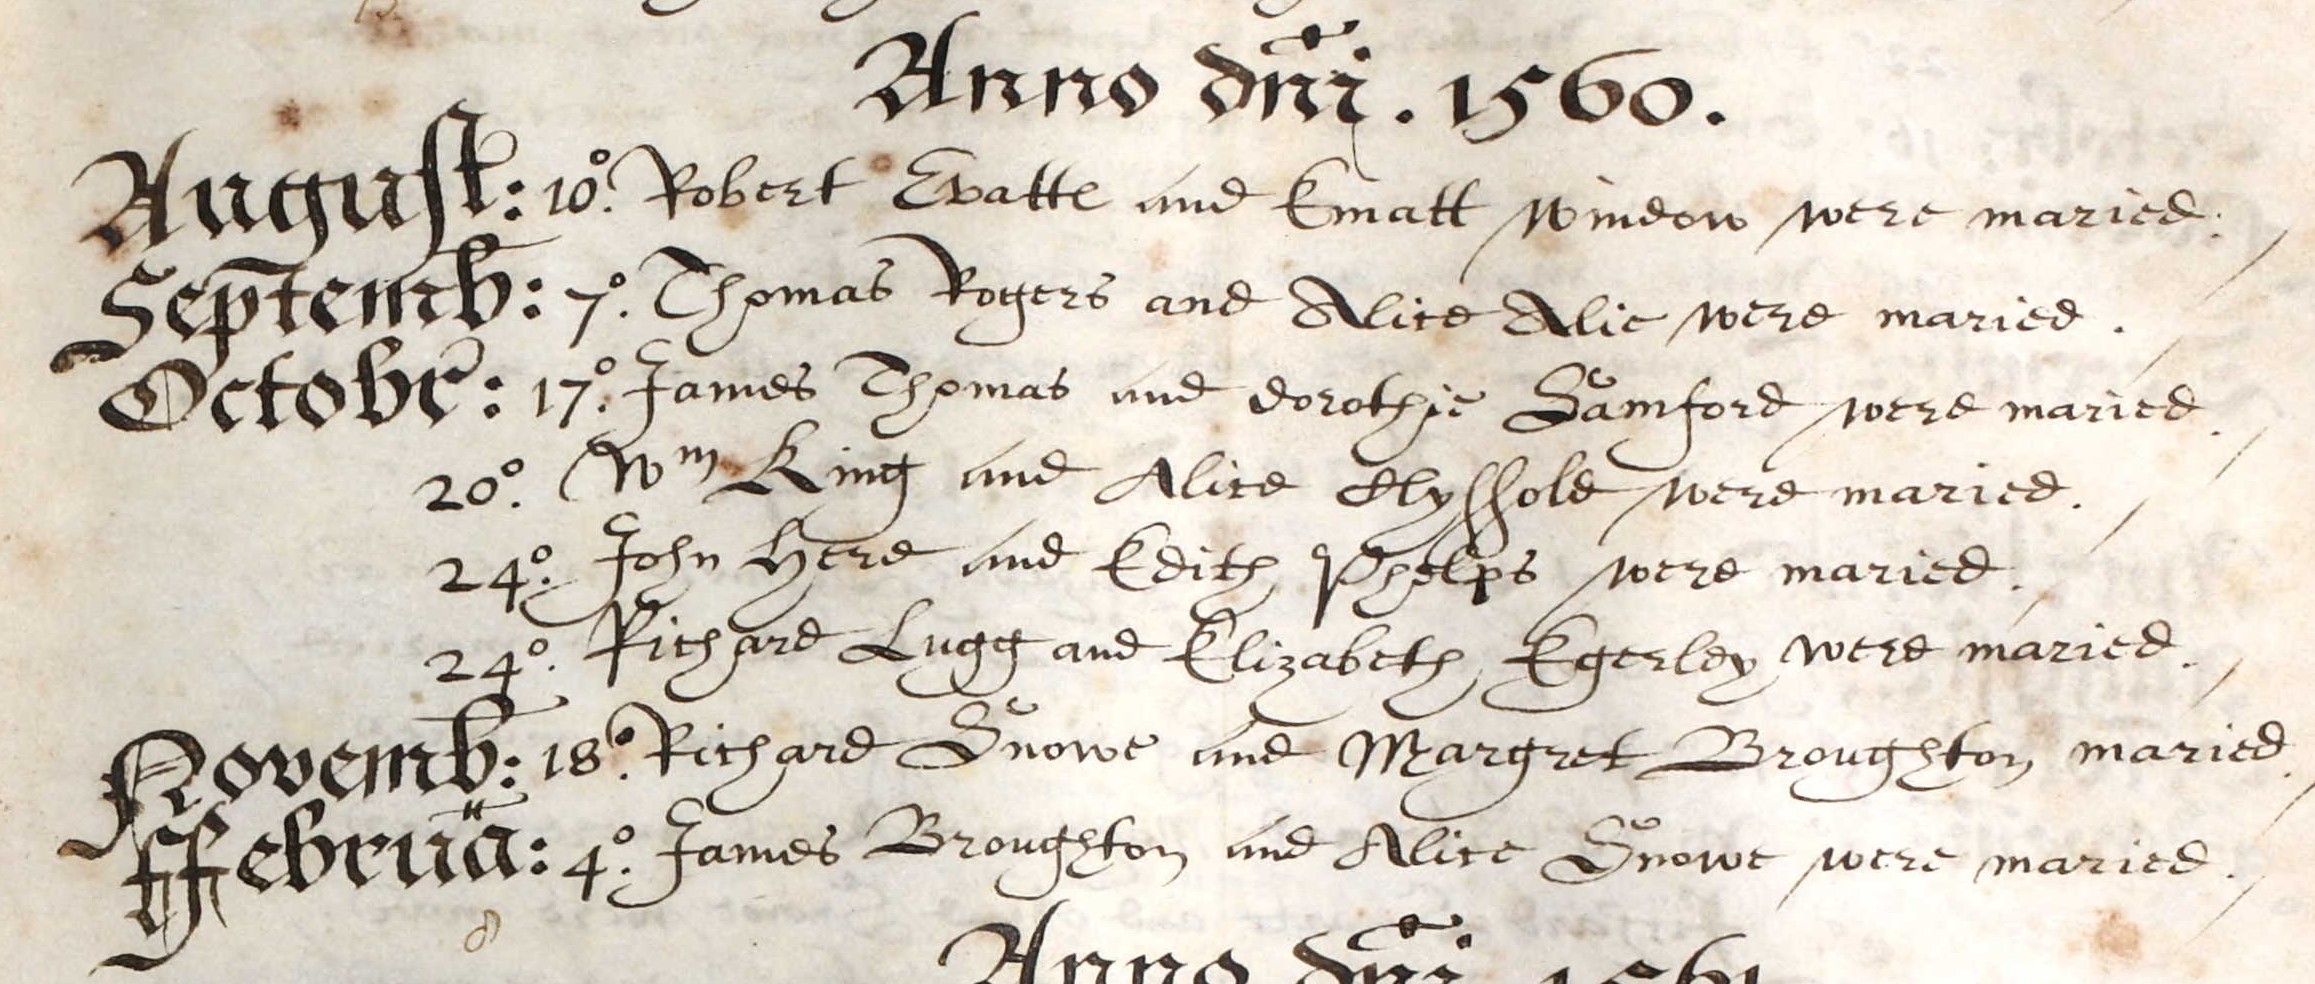 Anno dñi. 1560.
August: 10º. Robert Evatte and Ematt Window were maried.
Septemb: 7º. Thomas Rogers and Alice Alie were maried.
Octobr: 17º. James Thomas and dorothie Samford were maried.
20º. Wm King and Alice were maried.
24º. John Here and Edith Phelps were maried.
24º. Richard Lugg and Elizabeth Egerley were maried.
Novemb: 18º. Richard Snowe and Margret Broughton maried.
ffebrua: 4º. James Broughton and Alice Snowe were maried.
8
Anno dñi. 1561